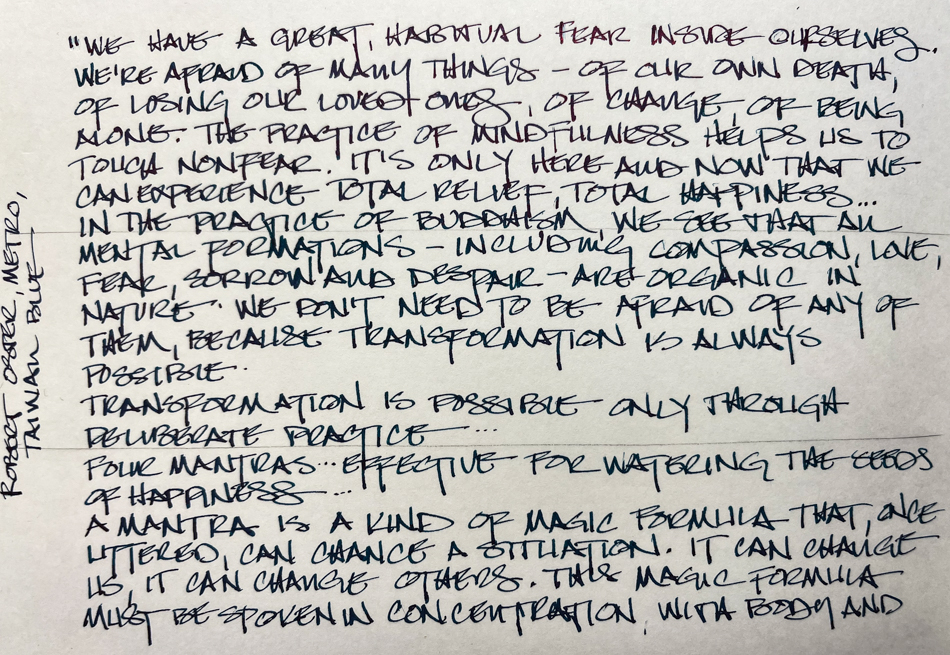 "WE HAVE A GREAT, HABITUAL FEAR INSIDE OURSELVES.
WE'RE AFRAID OF MANY THINGS – OF OUR OWN DEATH,
OF LOSING OUR LOVED ONES, OF CHANGE, OF BEING
ALONE. THE PRACTICE OF MINDFULNESS HELPS US TO
TOUCH NONFEAR. IT'S ONLY HERE AND NOW THAT WE
CAN EXPERIENCE TOTAL RELIEF, TOTAL HAPPINESS...
IN THE PRACTICE OF BUDDHISM, WE SEE THAT ALL
MENTAL FORMATIONS – INCLUDING COMPASSION, LOVE,
FEAR, SORROW AND DESPAIR – ARE ORGANIC IN
NATURE. WE DON'T NEED TO BE AFRAID OF ANY OF
THEM, BECAUSE TRANSFORMATION IS ALWAYS
POSSIBLE.
TRANSFORMATION IS POSSIBLE ONLY THROUGH
DELIBERATE PRACTICE ...
FOUR MANTRAS... EFFECTIVE FOR WATERING THE SEEDS
OF HAPPINESS ...
A MANTRA IS A KIND OF MAGIC FORMULA THAT, ONCE
UTTERED, CAN CHANGE A SITUATION. IT CAN CHANGE
US, IT CAN CHANGE OTHERS. THIS MAGIC FORMULA
MUST BE SPOKEN IN CONCENTRATION, WITH BODY AND
ROBERT OSTER, METRO,
TAIWAN BLUE